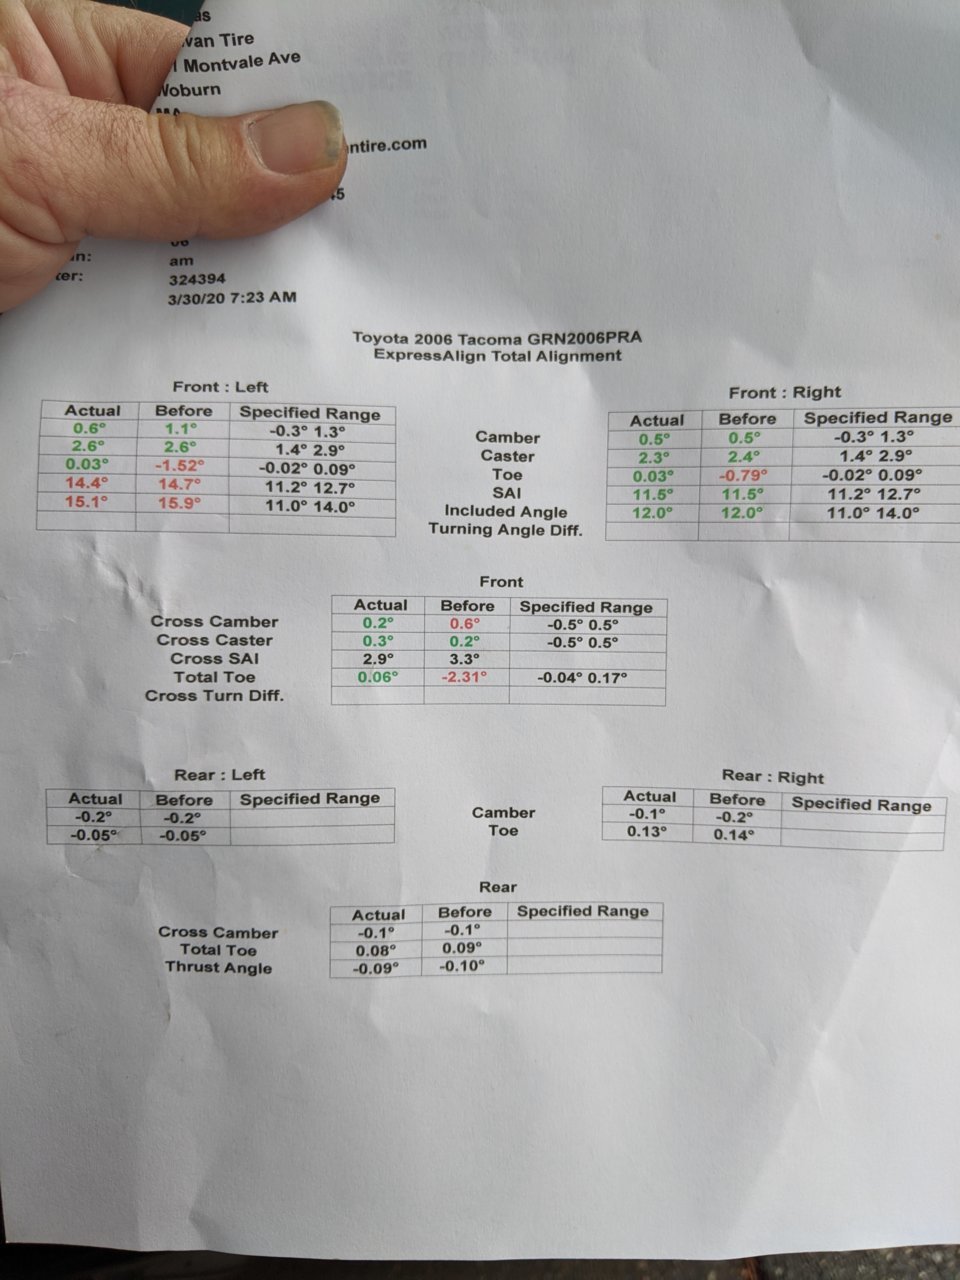 Tire
Montvale Ave
Woburn
ntire.com
am
324394
3/30/20 7:23 AM
Toyota 2006 Tacoma GRN2006PRA
ExpressAlign Total Alignment
Front : Left
Actual Before Specified Range
0.6° 1.1° -0.3° 1.3°
2.6° 2.6° 1.4° 2.9°
0.03° -1.52° -0.02° 0.09°
14.4° 14.7° 11.2° 12.7°
15.1° 15.9° 11.0° 14.0°
Camber
Caster
Toe
SAI
Included Angle
Turning Angle Diff.
Front : Right
Actual Before Specified Range
0.5° 0.5° -0.3° 1.3°
2.3° 2.4° 1.4° 2.9°
0.03° -0.79° -0.02° 0.09°
11.5° 11.5° 11.2° 12.7°
12.0° 12.0° 11.0° 14.0°
Front
Actual Before Specified Range
Cross Camber 0.2° 0.6° -0.5° 0.5°
Cross Caster 0.3° 0.2° -0.5° 0.5°
Cross SAI 2.9° 3.3°
Total Toe 0.06° -2.31° -0.04° 0.17°
Cross Turn Diff.
Rear : Left
Actual Before Specified Range
-0.2° -0.2°
-0.05° -0.05°
Camber
Toe
Rear : Right
Actual Before Specified Range
-0.1° -0.2°
0.13° 0.14°
Rear
Actual Before Specified Range
Cross Camber -0.1° -0.1°
Total Toe 0.08° 0.09°
Thrust Angle -0.09° -0.10°